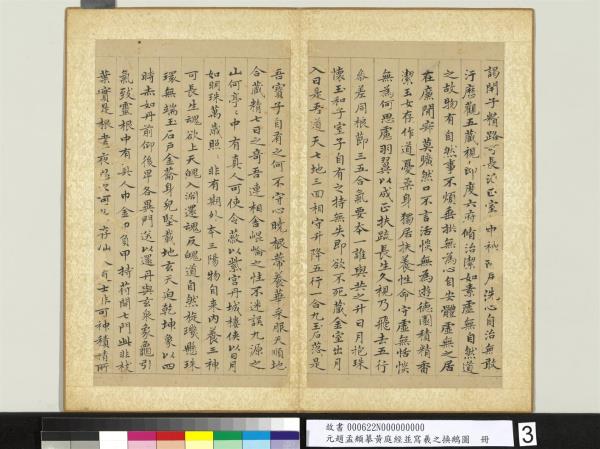 謁閉子精路可長活正室中神所居洗心自治無敢
汙歷觀五藏視節度六府脩治潔如素虛無自然道
之故物有自然事不煩垂拱無為心自安體虛無之居
在廉間寂莫曠然口不言活惔無為遊德園積精香
潔玉女存作道憂柔身獨居扶養性命守虛無恬惔
無為何思慮羽翼以成正扶疏長生久視乃飛去五行
參差同根節三五合氣要本一誰與共之升日月抱珠
懷玉和子室子自有之持無失即欲不死藏金室出月
入日是吾道天七地三回相守升降五行一合九玉石落是
吾寶子自有之何不守心曉根蔕養華采服天順地
合藏精七日之奇吾連相舍崐崘之性不迷誤九源之
山何亭〻中有真人可使令蔽以紫宮丹城樓俠以日月
如明珠萬歲照〻非有期外本三陽物自來內養三神
可長生魂欲上天魄入淵還魂反魄道自然旋璣懸珠
環無端玉石戶金籥身貌堅載地玄天迫乾坤象以四
時赤如丹前仰後卑各異門送以還丹與玄泉象龜引
氣致靈根中有真人巾金巾負甲持符開七門此非枝
葉實是根晝夜思之可存仙人道士非可神積精所
故書 000622N000000000
元趙孟頫摹黃庭經並寫羲之換鵝圖 冊
3